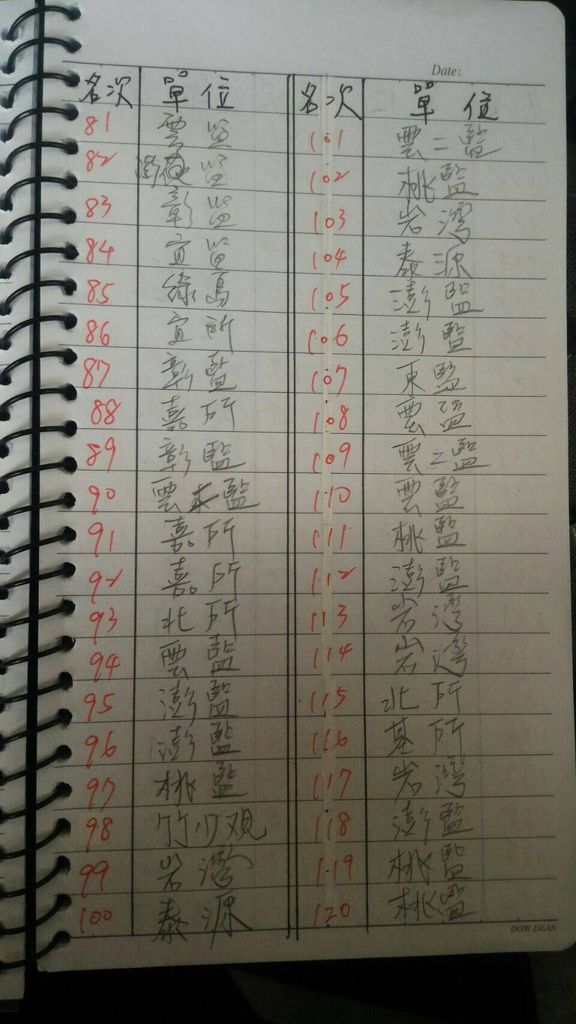 Date:
名次 單位 名次 單位
81 雲監 101 雲二監
82 監 102 桃監
83 彰監 103 岩灣
84 宜監 104 泰源
85 綠島 105 澎監
86 宜所 106 澎監
87 彰監 107 東監
88 嘉所 108 雲監
89 彰監 109 雲二監
90 雲監 110 雲監
91 嘉所 111 桃監
92 嘉所 112 澎監
93 北所 113 岩灣
94 雲監 114 岩灣
95 澎監 115 北所
96 澎監 116 基所
97 桃監 117 岩灣
98 竹少观 118 澎監
99 岩灣 119 桃監
100 泰源 120 桃監
DOW DEAN